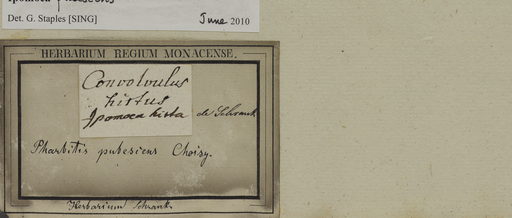 Ipomoea pubescens
Det. G. Staples [SING] June 2010
HERBARIUM REGIUM MONACENSE.
Convolvulus
hirtus
Ipomoea hirta de Schrank.
Pharbitis pubescens Choisy.
Herbarium Schrank.